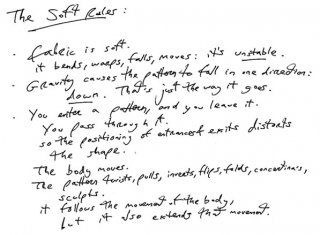 The Soft Rules:
· Fabric is soft.
it bends, warps, falls, moves: it's unstable.
· Gravity causes the pattern to fall in one direction:
down. That's just the way it goes.
· You enter a pattern, and you leave it.
You pass through it.
so the positioning of entrances & exits distorts
the shape.
The body moves.
The pattern twists, pulls, inverts, flips, folds, concertinas,
sculpts.
it follows the movement of the body,
but it also extends that movement.